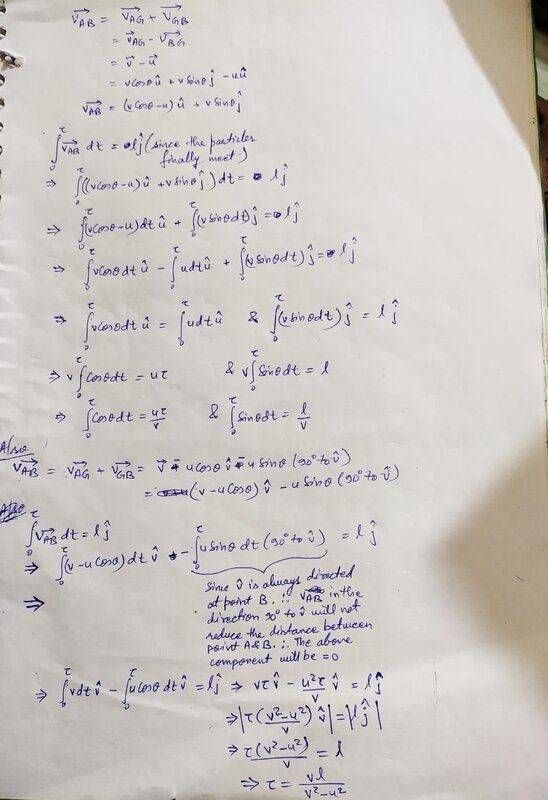 V⃗AB = V⃗AG + V⃗GB
= v⃗AG - V⃗BG
= v⃗ - u⃗
= vcosθ û + v sinθ ĵ - u û
V⃗AB = (vcosθ-u) û + v sinθ ĵ
∫₀^τ V⃗AB dt = l ĵ (since the particles finally meet.)
⇒ ∫₀^τ ((vcosθ-u) û + v sinθ ĵ) dt = l ĵ
⇒ ∫₀^τ (vcosθ-u) dt û + ∫₀^τ (v sinθ dt) ĵ = l ĵ
⇒ ∫₀^τ vcosθ dt û - ∫₀^τ u dt û + ∫₀^τ (v sinθ dt) ĵ = l ĵ
⇒ ∫₀^τ vcosθ dt û = ∫₀^τ u dt û & ∫₀^τ (v sinθ dt) ĵ = l ĵ
⇒ v ∫₀^τ cosθ dt = uτ & v ∫₀^τ sinθ dt = l
⇒ ∫₀^τ cosθ dt = uτ/v & ∫₀^τ sinθ dt = l/v
Also
V⃗AB = V⃗AG + V⃗GB = v⃗ - u cosθ v̂ - u sinθ (90° to v̂)
= (v - u cosθ) v̂ - u sinθ (90° to v̂)
∫₀^τ V⃗AB dt = l ĵ
⇒ ∫₀^τ (v - u cosθ) dt v̂ - ∫₀^τ u sinθ dt (90° to v̂) = l ĵ
⇒
Since v̂ is always directed
at point B. ∴ V⃗AB in the
direction 90° to v̂ will not
reduce the distance between
point A & B. ∴ The above
component will be = 0
⇒ ∫₀^τ v dt v̂ - ∫₀^τ u cosθ dt v̂ = l ĵ ⇒ vτ v̂ - u²τ/v v̂ = l ĵ
⇒ |τ (v²-u²)/v v̂| = |l ĵ|
⇒ τ(v²-u²)/v = l
⇒ τ = vl/(v²-u²)